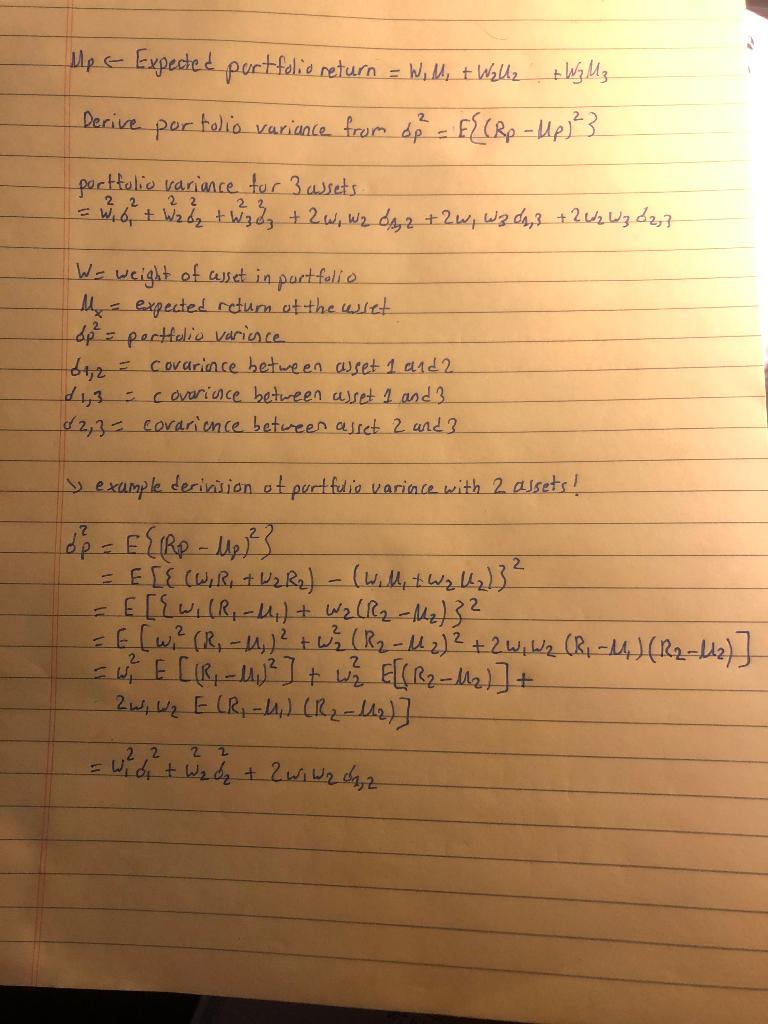 μp ← Expected portfolio return = W₁μ₁ + W₂μ₂ + W₃μ₃
Derive portolio variance from σp² = E{(Rp - μp)²}
portfolio variance for 3 assets
= W₁²σ₁² + W₂²σ₂² + W₃²σ₃² + 2w₁w₂ σ1,2 + 2w₁w₃ σ1,3 + 2w₂w₃ σ2,3
W = weight of asset in portfolio
μx = expected return of the asset
σp² = portfolio varience
σ1,2 = covariance between asset 1 and 2
σ1,3 = covariance between asset 1 and 3
σ2,3 = covariance between asset 2 and 3
↳ example derivision of portfolio varince with 2 assets!
σp² = E{(Rp - μp)²}
= E[{(W₁R₁ + W₂R₂) - (W₁μ₁ + w₂μ₂)}²
= E[{w₁(R₁-μ₁) + w₂(R₂-μ₂)}²
= E[w₁²(R₁-μ₁)² + w₂²(R₂-μ₂)² + 2w₁w₂(R₁-μ₁)(R₂-μ₂)]
= w₁² E[(R₁-μ₁)²] + w₂² E[(R₂-μ₂)] +
2w₁w₂ E(R₁-μ₁)(R₂-μ₂)]
= w₁²σ₁² + w₂²σ₂² + 2w₁w₂σ1,2